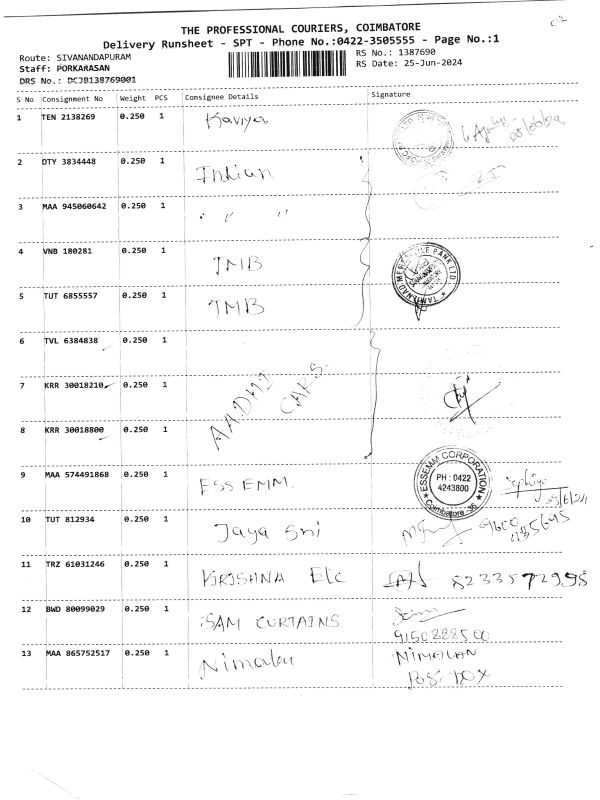 THE PROFESSIONAL COURIERS, COIMBATORE
Delivery Runsheet - SPT - Phone No.:0422-3505555 - Page No.:1
Route: SIVANANDAPURAM
RS No.: 1387690
Staff: PORKARASAN
RS Date: 25-Jun-2024
DRS No.: DCJB138769001
S No Consignment No Weight PCS Consignee Details Signature
1 TEN 2138269 0.250 1 Kaviya
2 DTY 3834448 0.250 1 Indian
3 MAA 945060642 0.250 1 " "
4 VNB 180281 0.250 1 TMB
TAMILNAD MERCANTILE BANK LTD.
5 TUT 6855557 0.250 1 TMB
6 TVL 6384838 0.250 1
7 KRR 30018210 0.250 1 AADHI CARS
8 KRR 30018800 0.250 1
ESSEMM CORPORATION
PH : 0422
4243800
Coimbatore-35
9 MAA 574491868 0.250 1 ESSEMM.
10 TUT 812934 0.250 1 Jaya Sri
11 TRZ 61031246 0.250 1 KRISHNA Elc 8233572995
12 BWD 80099029 0.250 1 SAM CURTAINS
9150288500
13 MAA 865752517 0.250 1 Nimalan NIMALAN